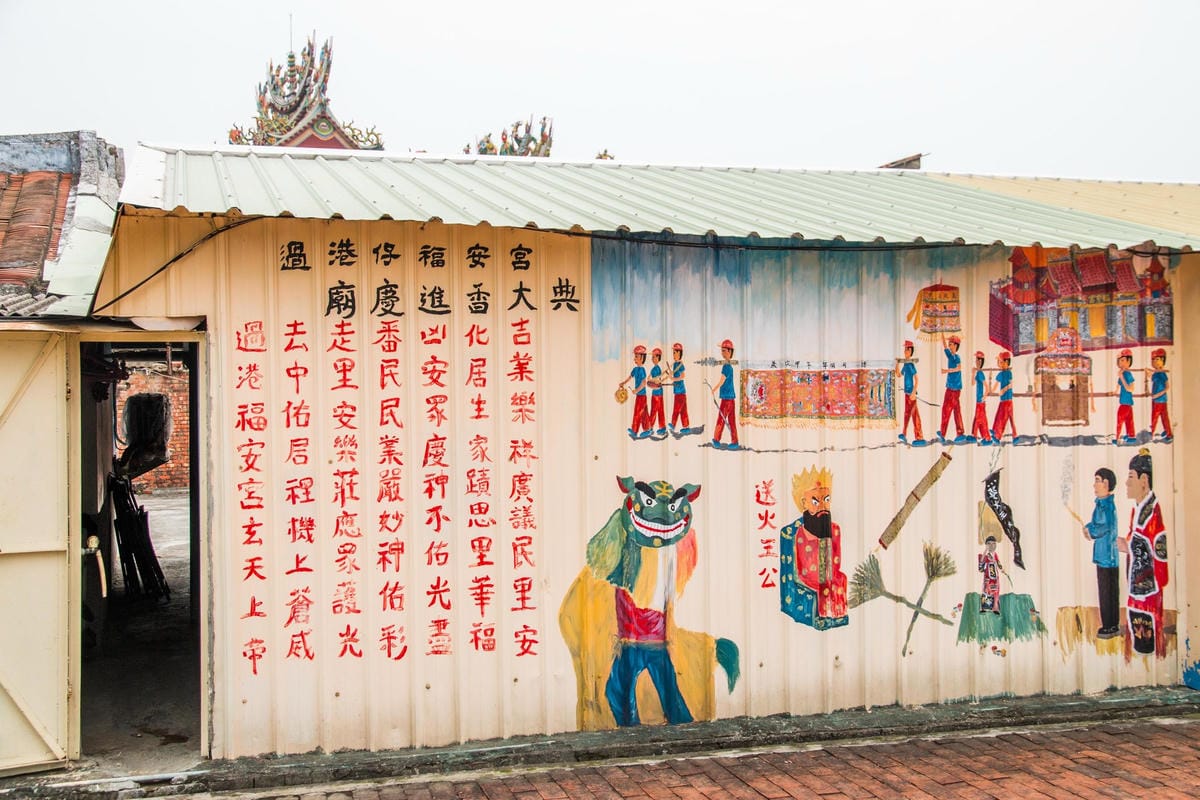 過港仔福安宮
廟慶進香大典
過去走番凶化吉
港中里民安居業
福佑安民眾生樂
安居樂業慶家祥
宮裎莊嚴神蹟廣
玄機應妙不思議
天上眾神佑里民
上蒼護佑光華里
帝威光彩靈福安
送火王公